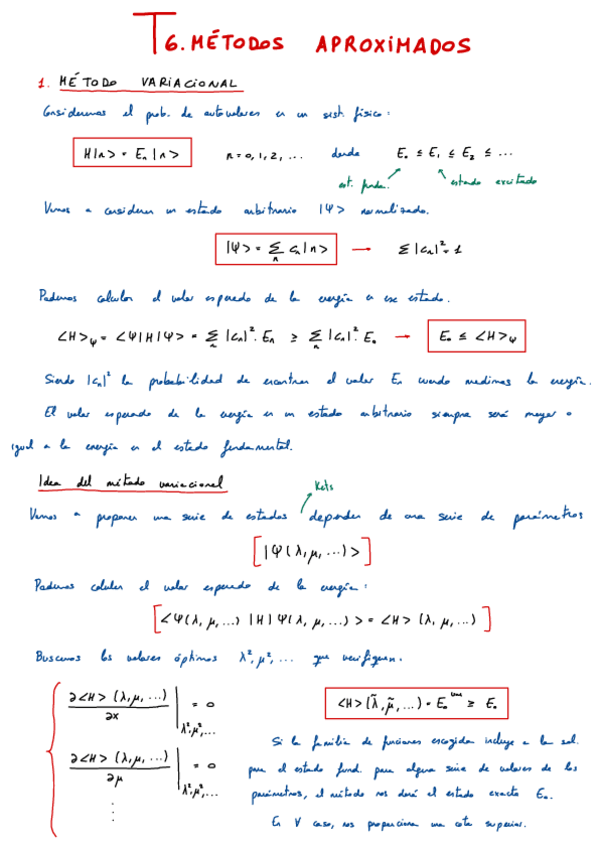 T6. MÉTODOS APROXIMADOS
1. MÉTODO VARIACIONAL
Consideremos el prob. de autovalores en un sist. físico:
H|n> = En|n> n = 0, 1, 2, ... donde E₀ ≤ E₁ ≤ E₂ ≤ ...
est. funda. estado excitado
Vamos a considerar un estado arbitrario |Ψ> normalizado.
|Ψ> = Σn cn|n> → Σ|cn|² = 1
Podemos calcular el valor esperado de la energía en ese estado.
<H>Ψ = <Ψ|H|Ψ> = Σn |cn|²· En ≥ Σn |cn|²· E₀ → E₀ ≤ <H>Ψ
Siendo |cn|² la probabilidad de encontrar el valor En cuando medimos la energía.
El valor esperado de la energía en un estado arbitrario siempre será mayor o
igual a la energía en el estado fundamental.
Idea del método variacional
Kets
Vamos a proponer una serie de estados depender de una serie de parámetros
[|Ψ(λ, μ, ...)>]
Podemos calcular el valor esperado de la energía:
[<Ψ(λ, μ, ...) |H| Ψ(λ, μ, ...)> = <H> (λ, μ, ...)]
Buscamos los valores óptimos λ², μ², ... que verifiquen.
∂<H> (λ, μ, ...) / ∂x | λ², μ², ... = 0 <H>(λ̃, μ̃, ...) = E₀ ≥ E₀
Si la familia de funciones escogida incluye a la sol.
∂<H> (λ, μ, ...) / ∂μ | λ², μ², ... = 0 para el estado fund. para alguna serie de valores de los
parámetros, el método nos dará el estado exacto E₀.
⋮ En V caso, nos proporciona una cota superior.